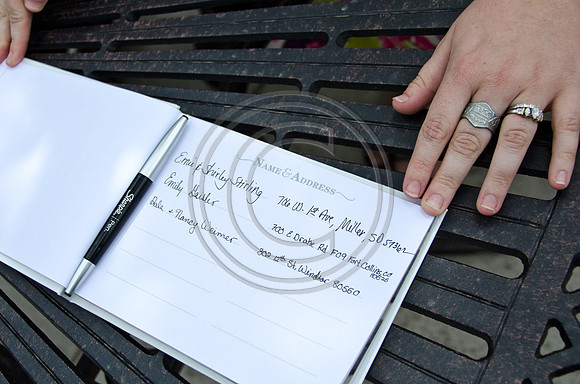 NAME & ADDRESS
Ernie & Shirley Stirling 706 W. 1st Ave, Miller SD 57362
Emily 703 E Drake Rd F09 Fort Collins CO
& Nancy Weimer 300 St. Windsor 80550
Sharpie Pen
©